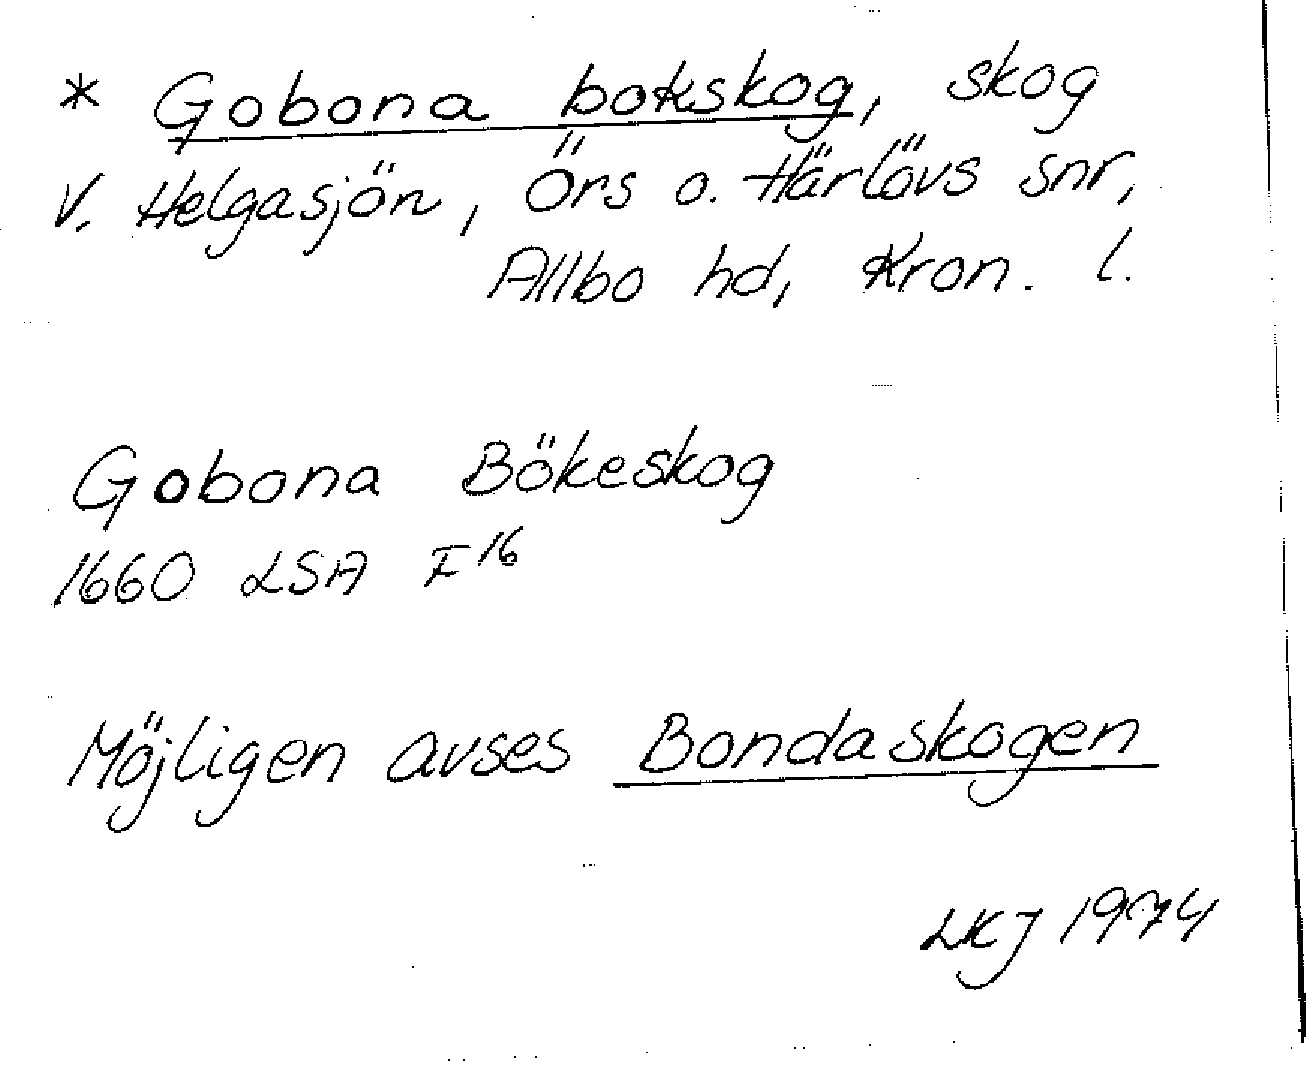 * Gobona bokskog, skog
V. Helgasjön, Örs o. Härlövs snr,
Allbo hd, Kron. l.
Gobona Bökeskog
1660 LSA F16
Möjligen avses Bondaskogen
LKJ 1974